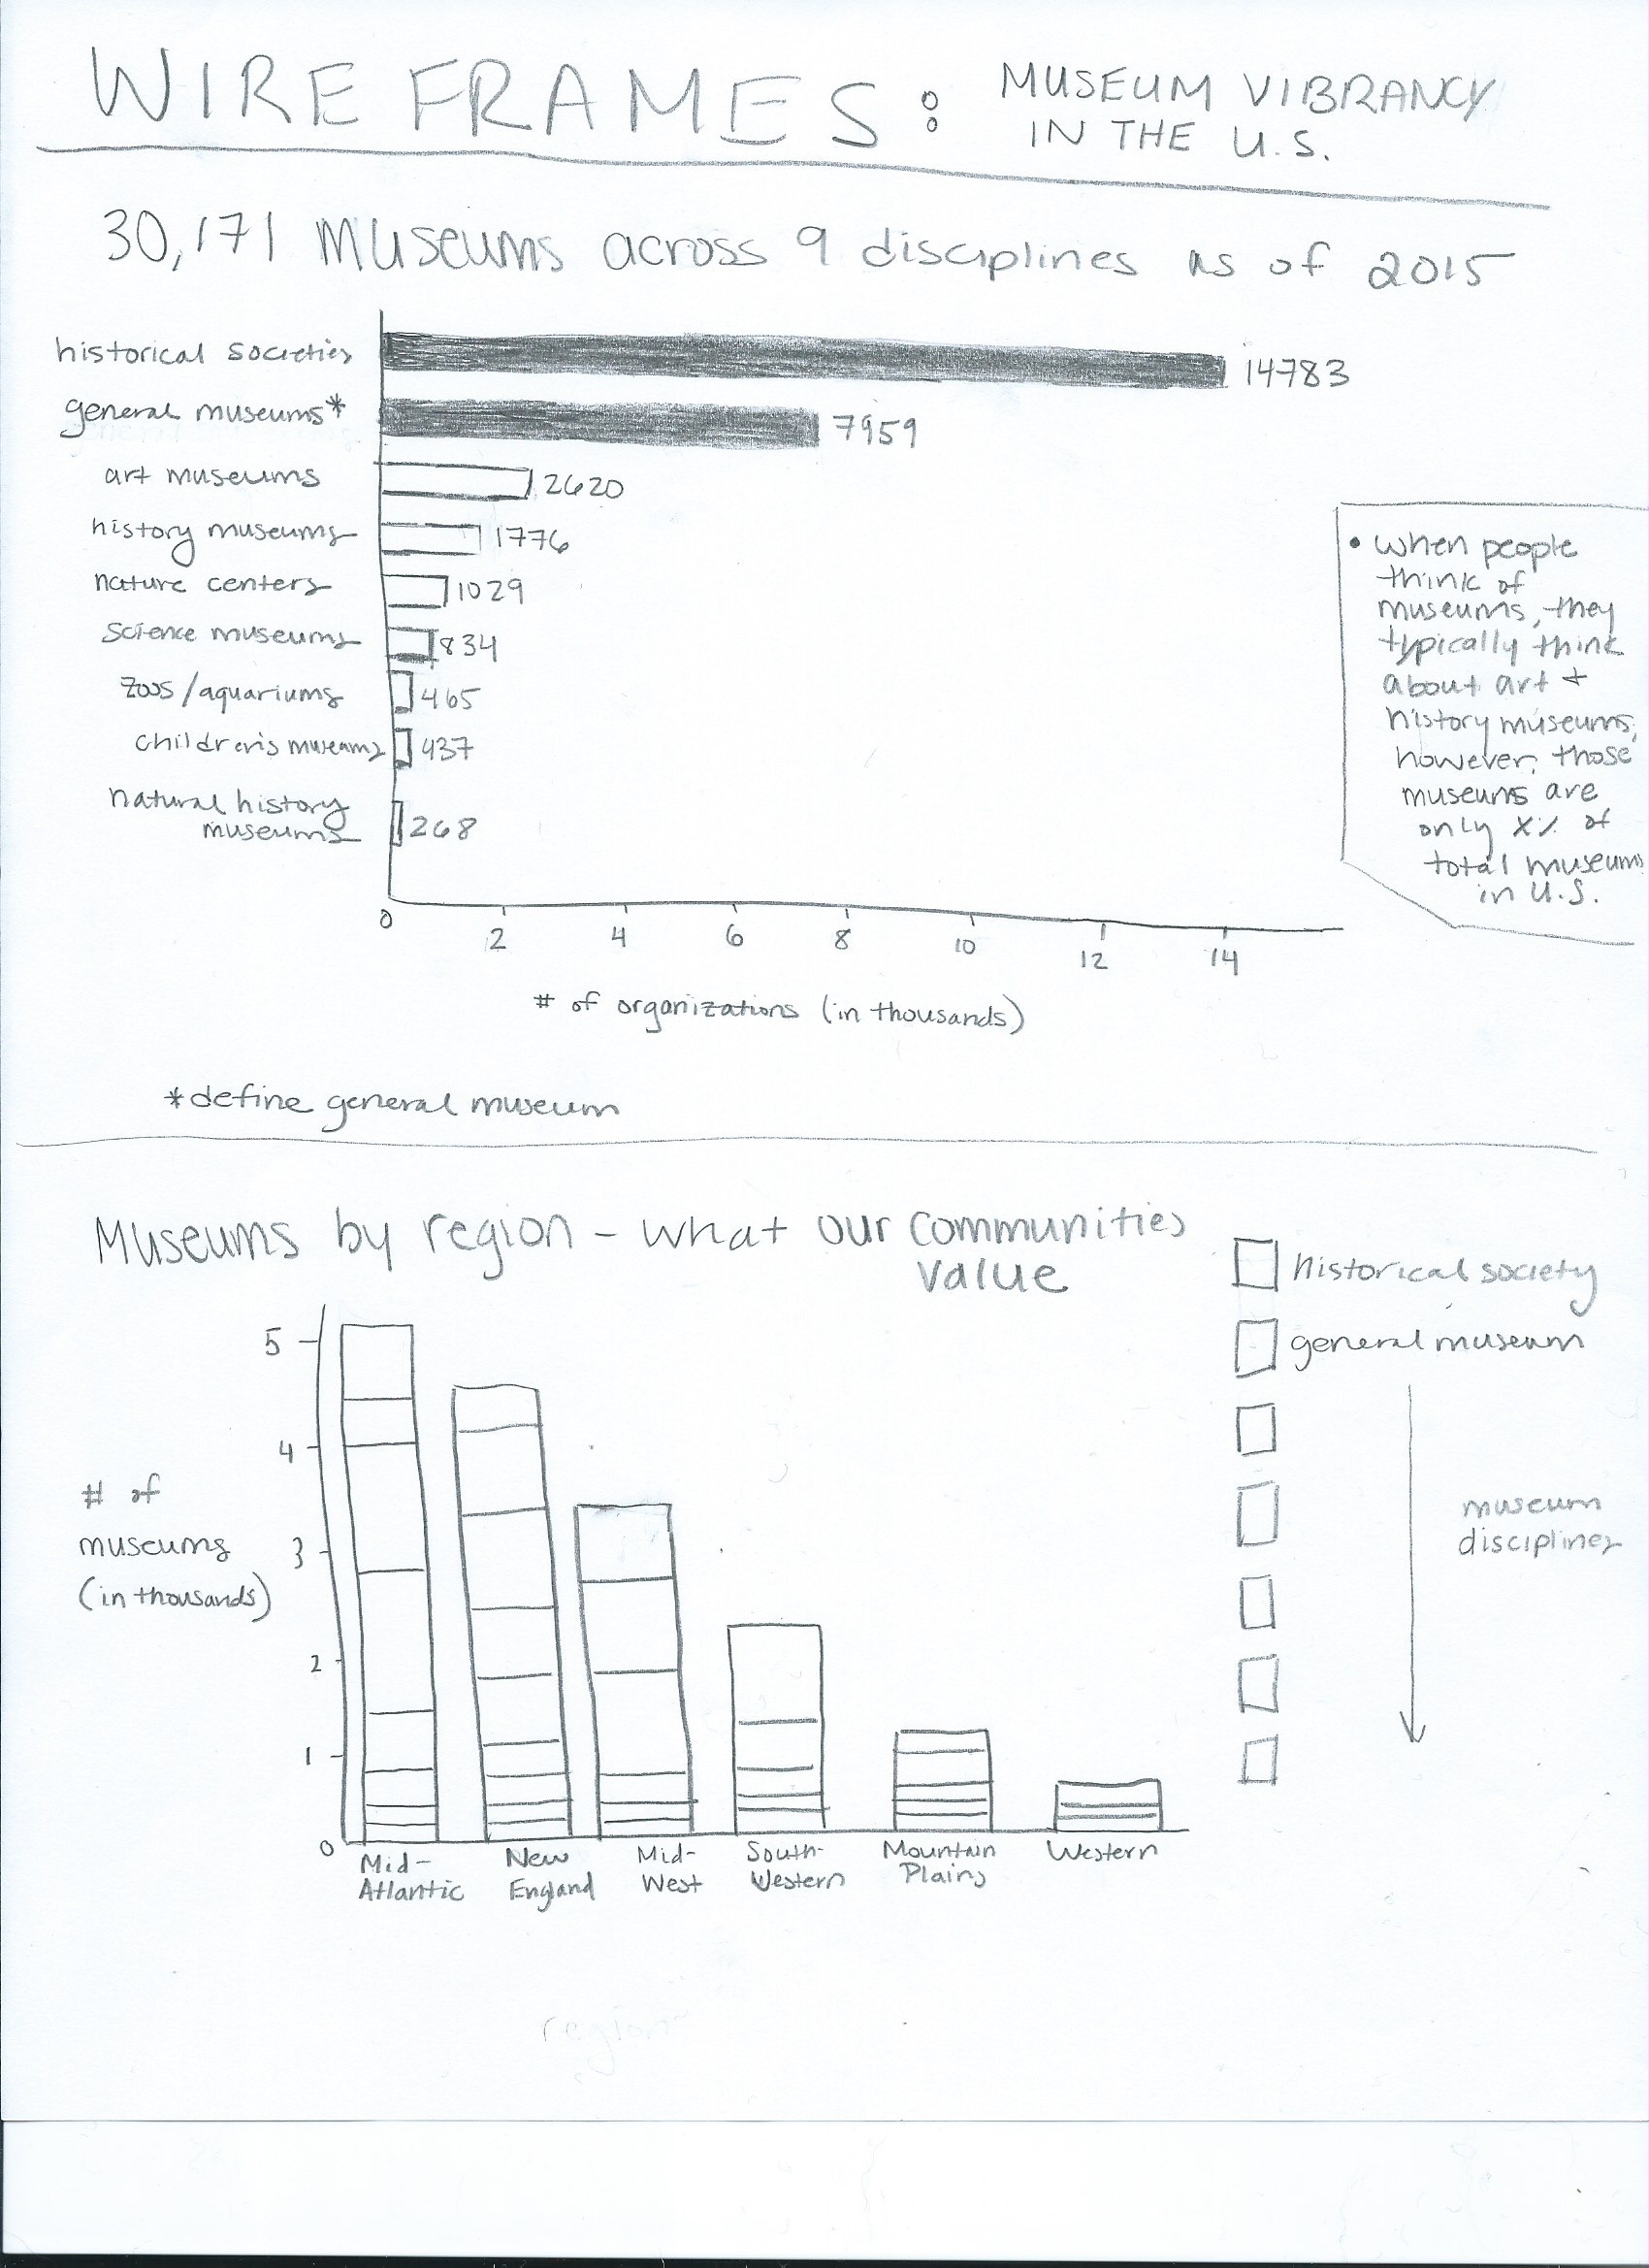 WIRE FRAMES: MUSEUM VIBRANCY
IN THE U.S.
30,171 Museums across 9 disciplines as of 2015
historical societies 14783
general museums* 7959
art museums 2620
history museums 1776
nature centers 1029
Science museums 834
Zoos/aquariums 465
children's museums 437
natural history
museums 268
0 2 4 6 8 10 12 14
# of organizations (in thousands)
*define general museum
• when people
think of
museums, they
typically think
about art +
history museums,
however, those
museums are
only X% of
total museums
in U.S.
Museums by region - what our communities
value
5
4
3
2
1
0
# of
museums
(in thousands)
Mid-
Atlantic
New
England
Mid-
West
South-
Western
Mountain
Plains
Western
historical society
general museum
museum
disciplines
region